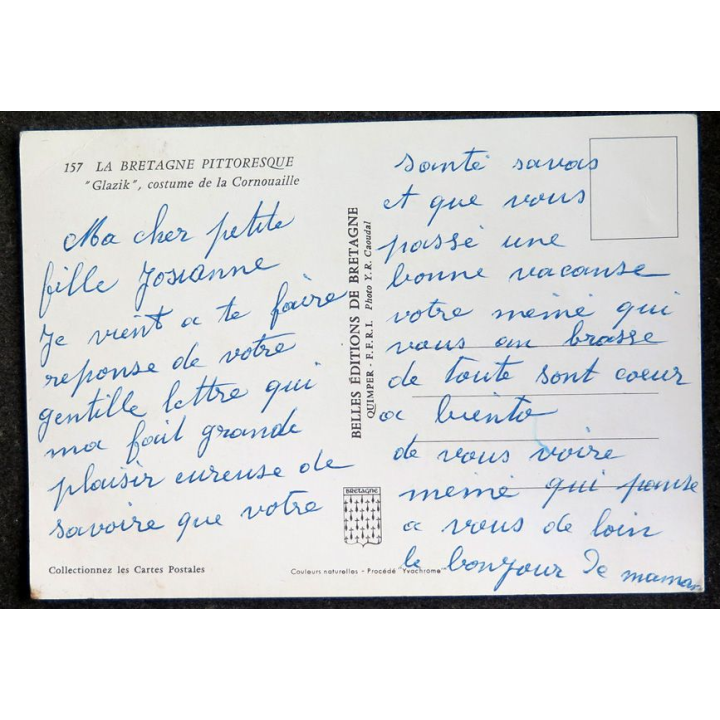 157 LA BRETAGNE PITTORESQUE
"Glazik", costume de la Cornouaille
Ma cher petite
fille Josianne
Je vient a te faire
reponse de votre
gentille lettre qui
ma fait grande
plaisir eureuse de
savoire que votre
santé savas
et que vous
passé une
bonne vacanse
votre mémé qui
vous an brasse
de toute sont coeur
a biento
de vous voire
mémé qui panse
a vous de loin
le bonjour De maman
BELLES ÉDITIONS DE BRETAGNE
QUIMPER - F.F.R.I. Photo Y. R. Caoudal
BRETAGNE
Collectionnez les Cartes Postales
Couleurs naturelles - Procédé "Yvachrome"